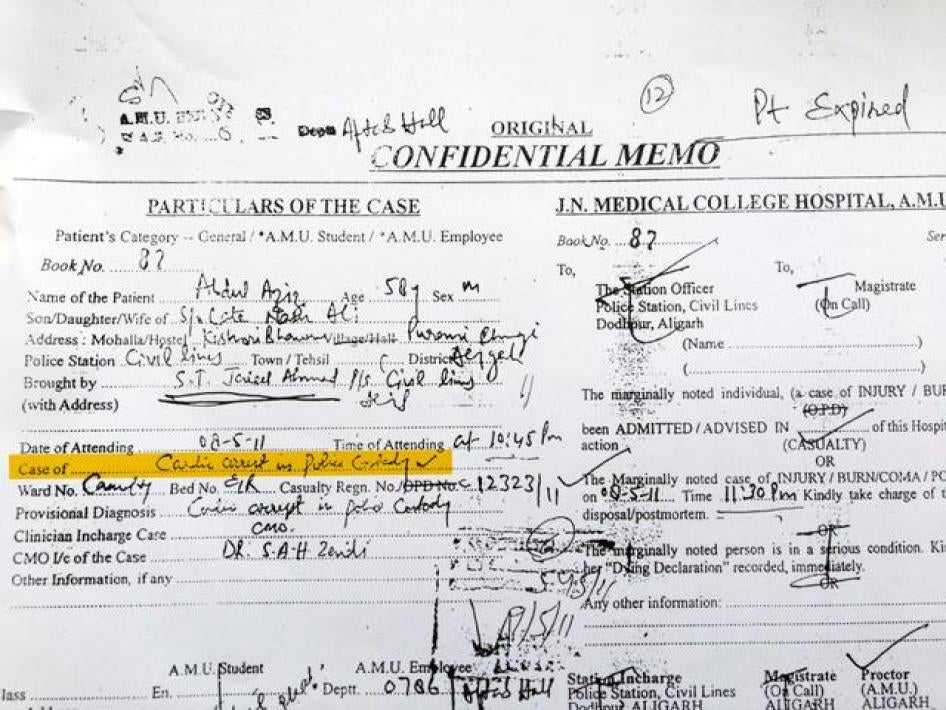 12
Pt Expired
Aftab Hall
ORIGINAL
CONFIDENTIAL MEMO
PARTICULARS OF THE CASE
Patient's Category -- General / *A.M.U. Student / *A.M.U. Employee
Book No. 87
Name of the Patient Abdul Aziz Age 58y Sex m
Son/Daughter/Wife of S/o Late Ali
Address : Mohalla/Hostel Village/Hall
Police Station Civil lines Town / Tehsil District
Brought by S.I. Ahmad P/S Civil lines
(with Address)
Date of Attending 08-5-11 Time of Attending at 10:45 Pm
Case of Cardiac arrest in Police Custody
Ward No. Bed No. Casualty Regn. No./OPD No. 12323/11
Provisional Diagnosis Cardiac arrest in police Custody
Clinician Incharge Case CMO.
CMO I/c of the Case DR. S.A.H
Other Information, if any
9/5/11
A.M.U. Student A.M.U. Employee
lass En. Deptt. 0786 Aftab Hall
J.N. MEDICAL COLLEGE HOSPITAL, A.M.U
Book No. 87 Ser
To, To,
The Station Officer Magistrate
Police Station, Civil Lines (On Call)
Dodhpur, Aligarh
(Name )
( )
The marginally noted individual, (a case of INJURY / BUR
(O.P.D)
been ADMITTED / ADVISED IN of this Hospit
action (CASUALTY)
OR
The Marginally noted case of INJURY/BURN/COMA/PO
on 08-5-11 Time 11:30 Pm Kindly take charge of t
disposal/postmortem.
OR
The marginally noted person is in a serious condition. Kin
her "Dying Declaration" recorded, immediately.
OR
Any other information:
Station Incharge Magistrate Proctor
Police Station, Civil Lines (On Call) (A.M.U.)
Dodhpur ALIGARH ALIGARH ALIGARH